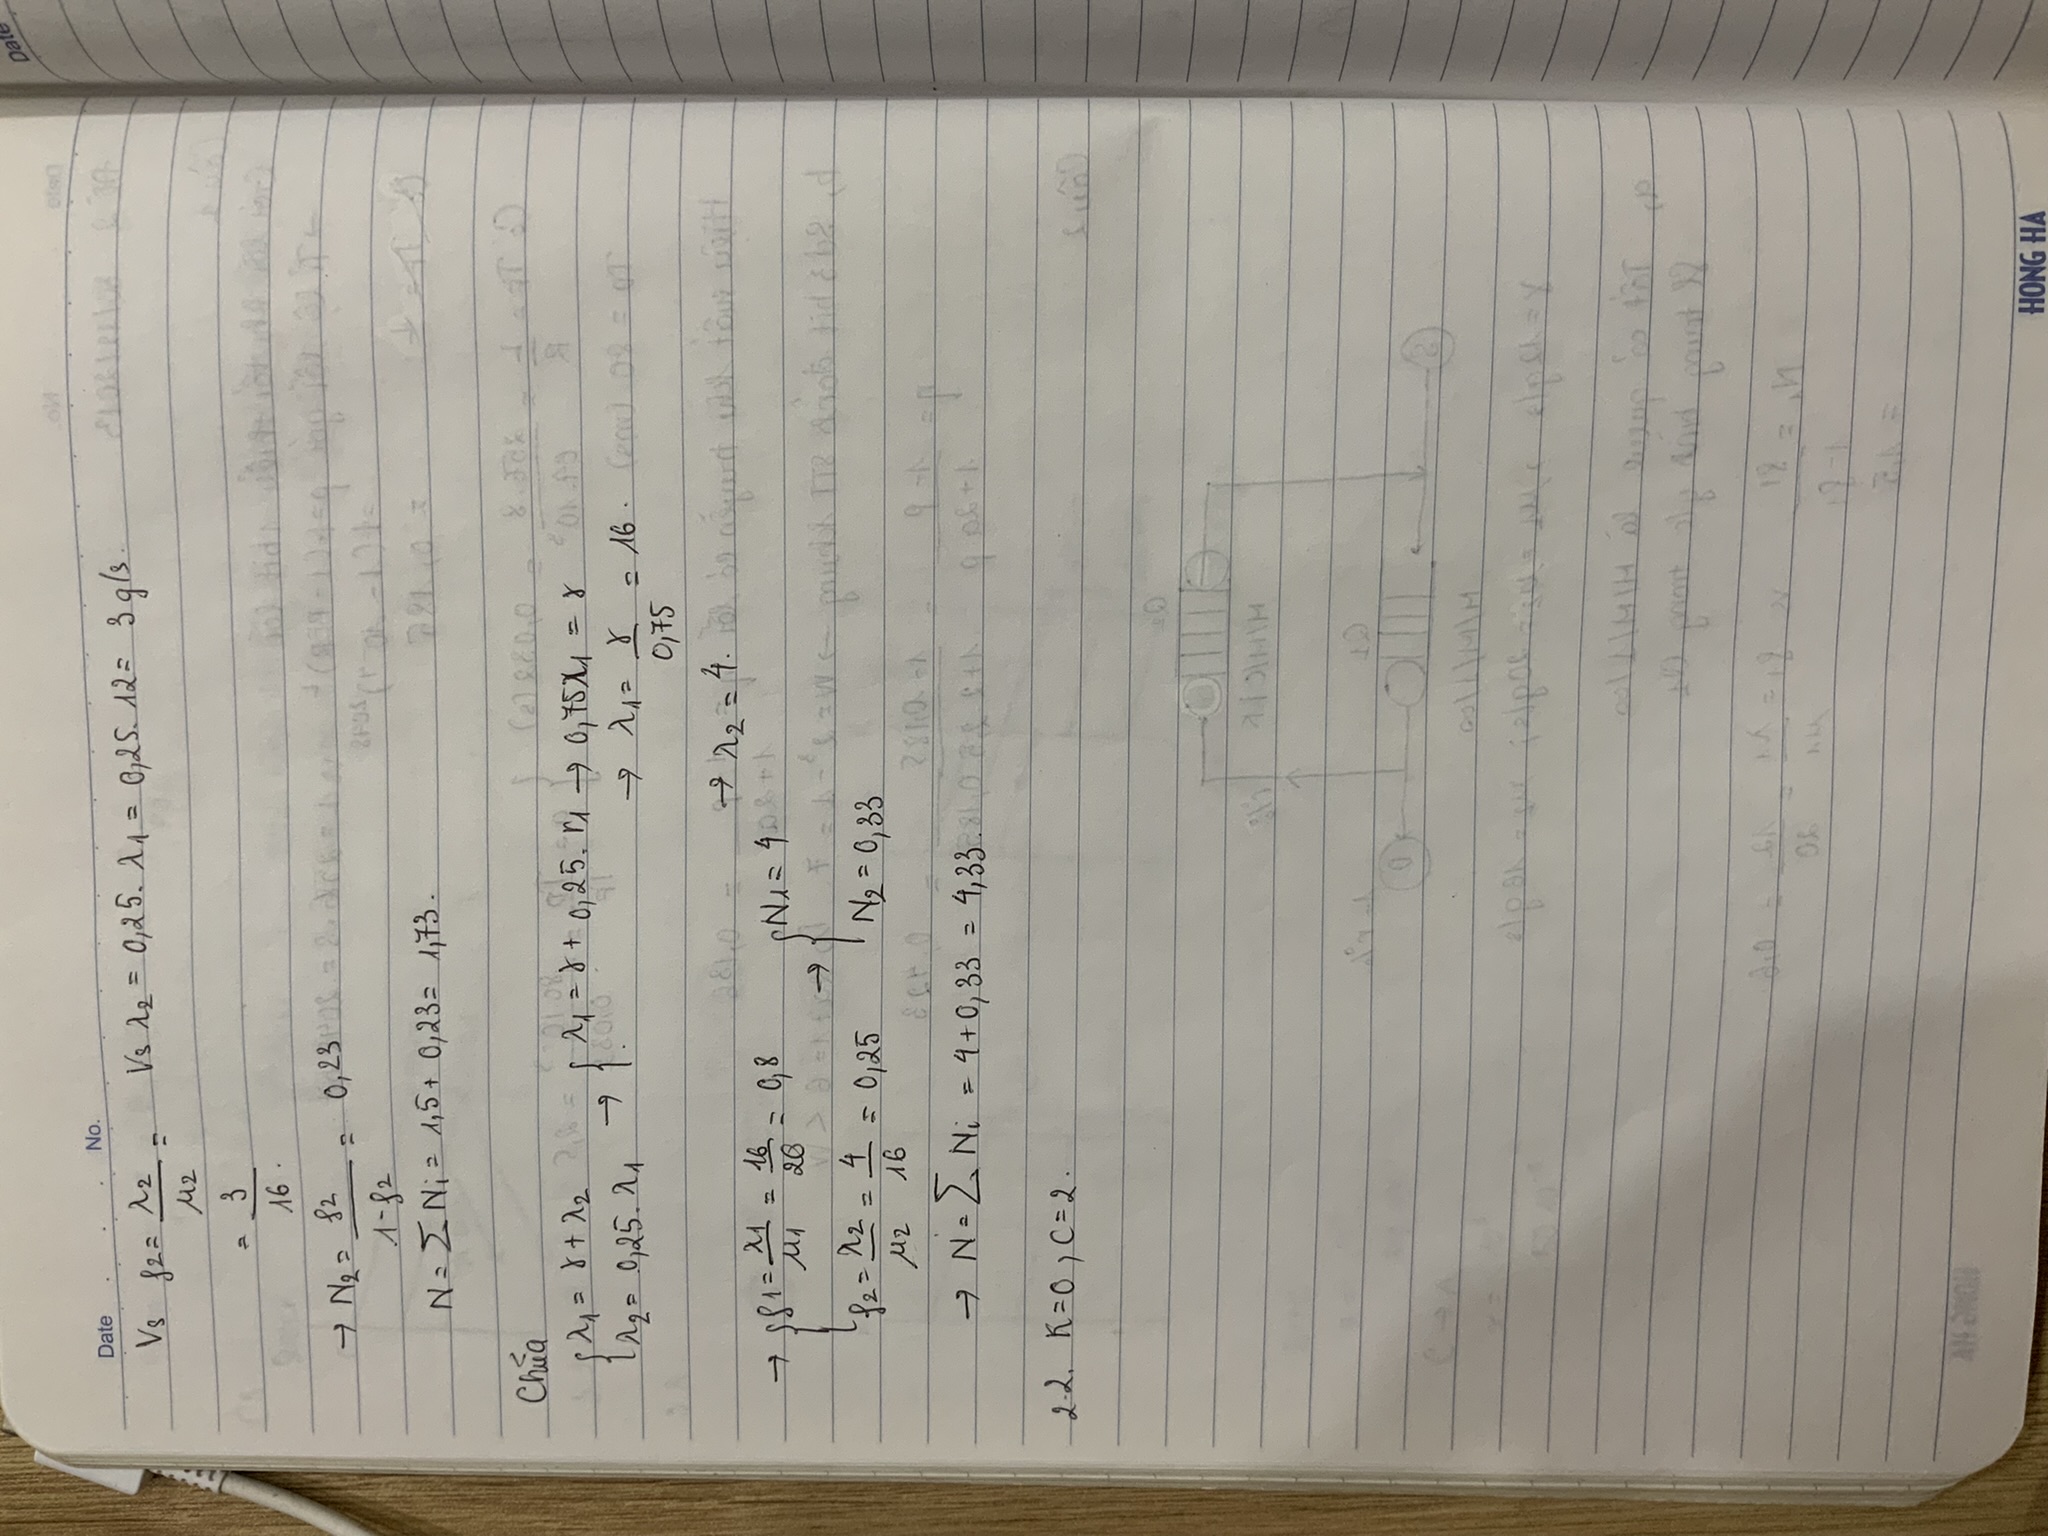 Date . . . No.
Vs ρ2 = λ2/μ2 = Vs λ2 = 0,25. λ1 = 0,25. 12 = 3 g/s.
= 3/16.
→ N2 = ρ2/(1-ρ2) = 0,23
N = Σ Ni = 1,5 + 0,23 = 1,73.
Chữa
{ λ1 = γ + λ2 → { λ1 = γ + 0,25. r1 → 0,75λ1 = γ
λ2 = 0,25. λ1 → λ1 = γ/0,75 = 16.
→ λ2 = 4.
→ { ρ1 = λ1/μ1 = 16/20 = 0,8 → { N1 = 4
ρ2 = λ2/μ2 = 4/16 = 0,25 N2 = 0,33
→ N = Σ Ni = 4 + 0,33 = 4,33.
2.2. K=0, C=2.
HONG HA